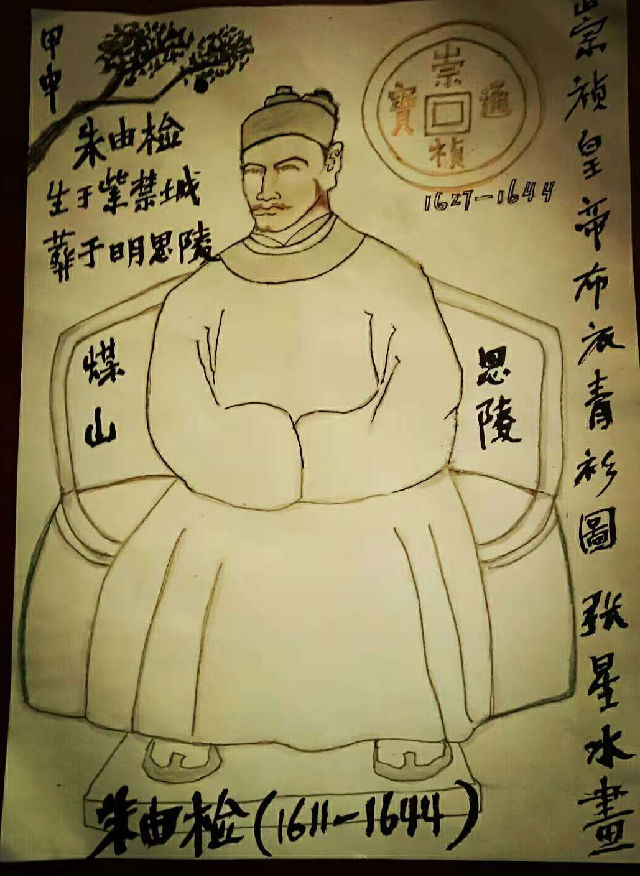 甲申
朱由检
生于紫禁城
葬于明思陵
崇祯通寳
1627-1644
煤山
思陵
崇祯皇帝布衣青衫圖 张星水畫
朱由检(1611-1644)